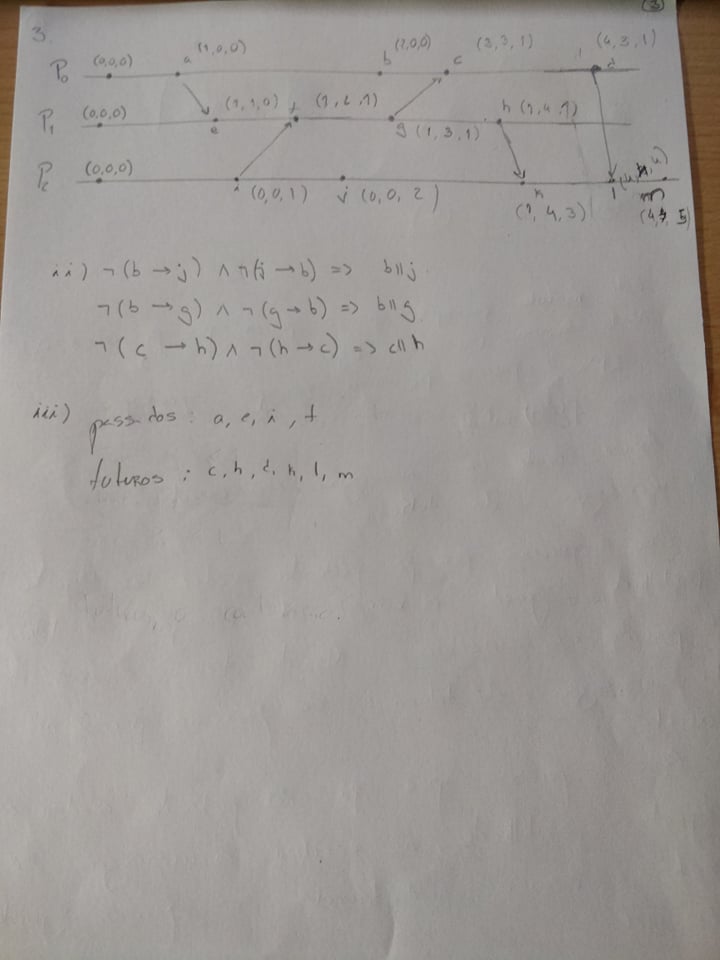 3
3.
P0 (0,0,0) a (1,0,0) b (2,0,0) c (3,3,1) d (4,3,1)
P1 (0,0,0) e (1,1,0) f (1,2,1) g (1,3,1) h (1,4,1)
P2 (0,0,0) i (0,0,1) j (0,0,2) k (1,4,3) l m
ii) ¬(b → j) ∧ ¬(j → b) => b||j
¬(b → g) ∧ ¬(g → b) => b||g
¬(c → h) ∧ ¬(h → c) => c||h
iii) passados : a, e, i, f
futuros : c, h, d, k, l, m